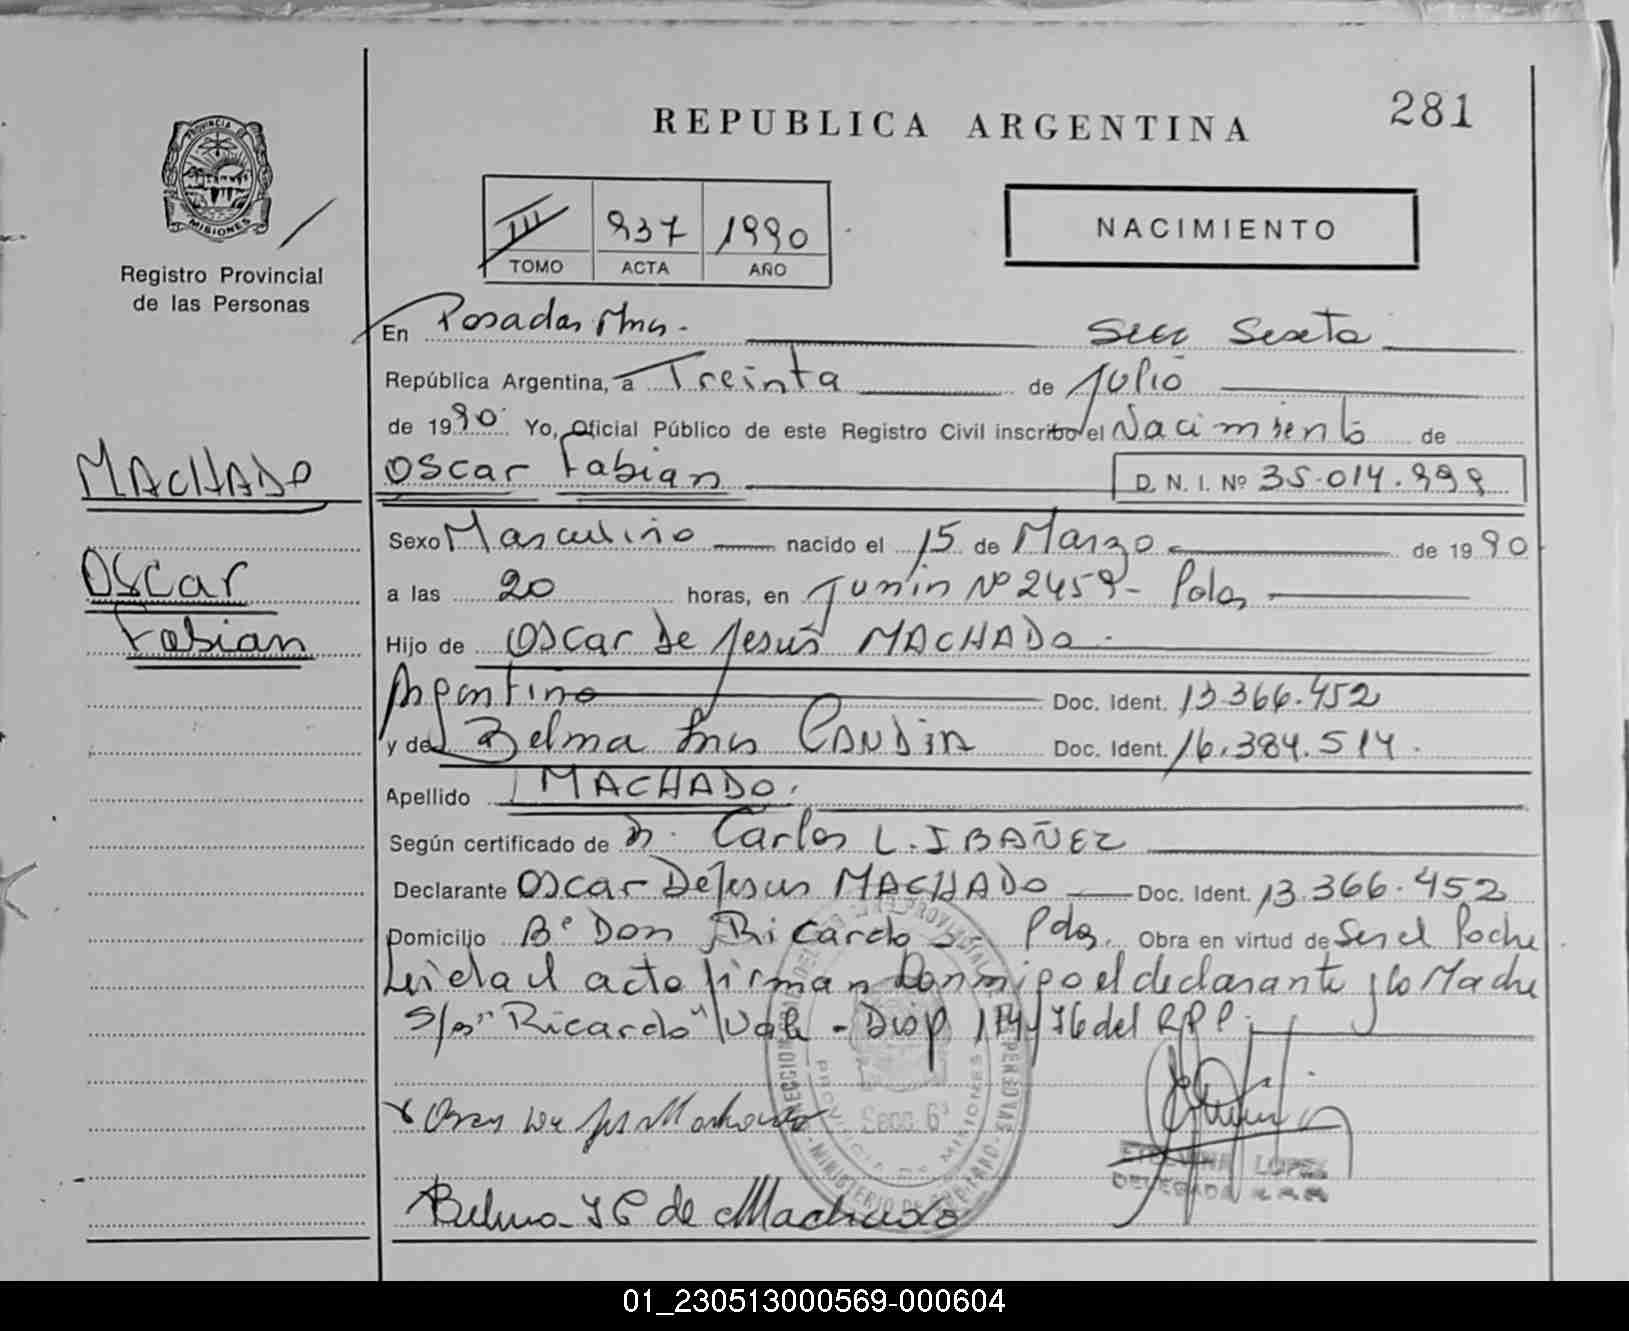 281
REPUBLICA ARGENTINA
PROVINCIA DE
MISIONES
Registro Provincial
de las Personas
III 937 1990
TOMO ACTA AÑO
NACIMIENTO
En Posadas Mnes. Secc Sexta
República Argentina, a Treinta de Julio
de 1990 Yo, Oficial Público de este Registro Civil inscribo el Nacimiento de
Oscar Fabian D. N. I. Nº 35.014.999
MACHADO
Sexo Masculino nacido el 15 de Marzo de 1990
Oscar
a las 20 horas, en Junin Nº 2459 - Pdas
Fabian
Hijo de Oscar De Jesús MACHADO.
Argentino Doc. Ident. 13.366.452
y de Belma Ines Doc. Ident. 16.384.514.
Apellido MACHADO.
Según certificado de Dr. Carlos L. IBAÑEZ
Declarante Oscar De Jesus MACHADO Doc. Ident. 13.366.452
Domicilio Bº Don Ricardo Pdas. Obra en virtud de Ser el Padre
Leida el acta firman Conmigo el declarante y la Madre
S/ "Ricardo" Vale - Disp 114/76 del R P P.
Secc. 6ª
PROVINCIA DE MISIONES
Belma I C de Machado
LOPEZ
DELEGADA
01_230513000569-000604